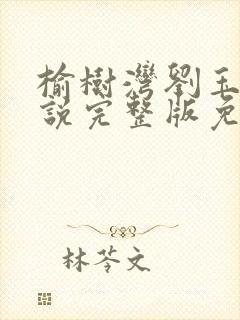 榆樹灣劉玉
說完整版免
林苓文